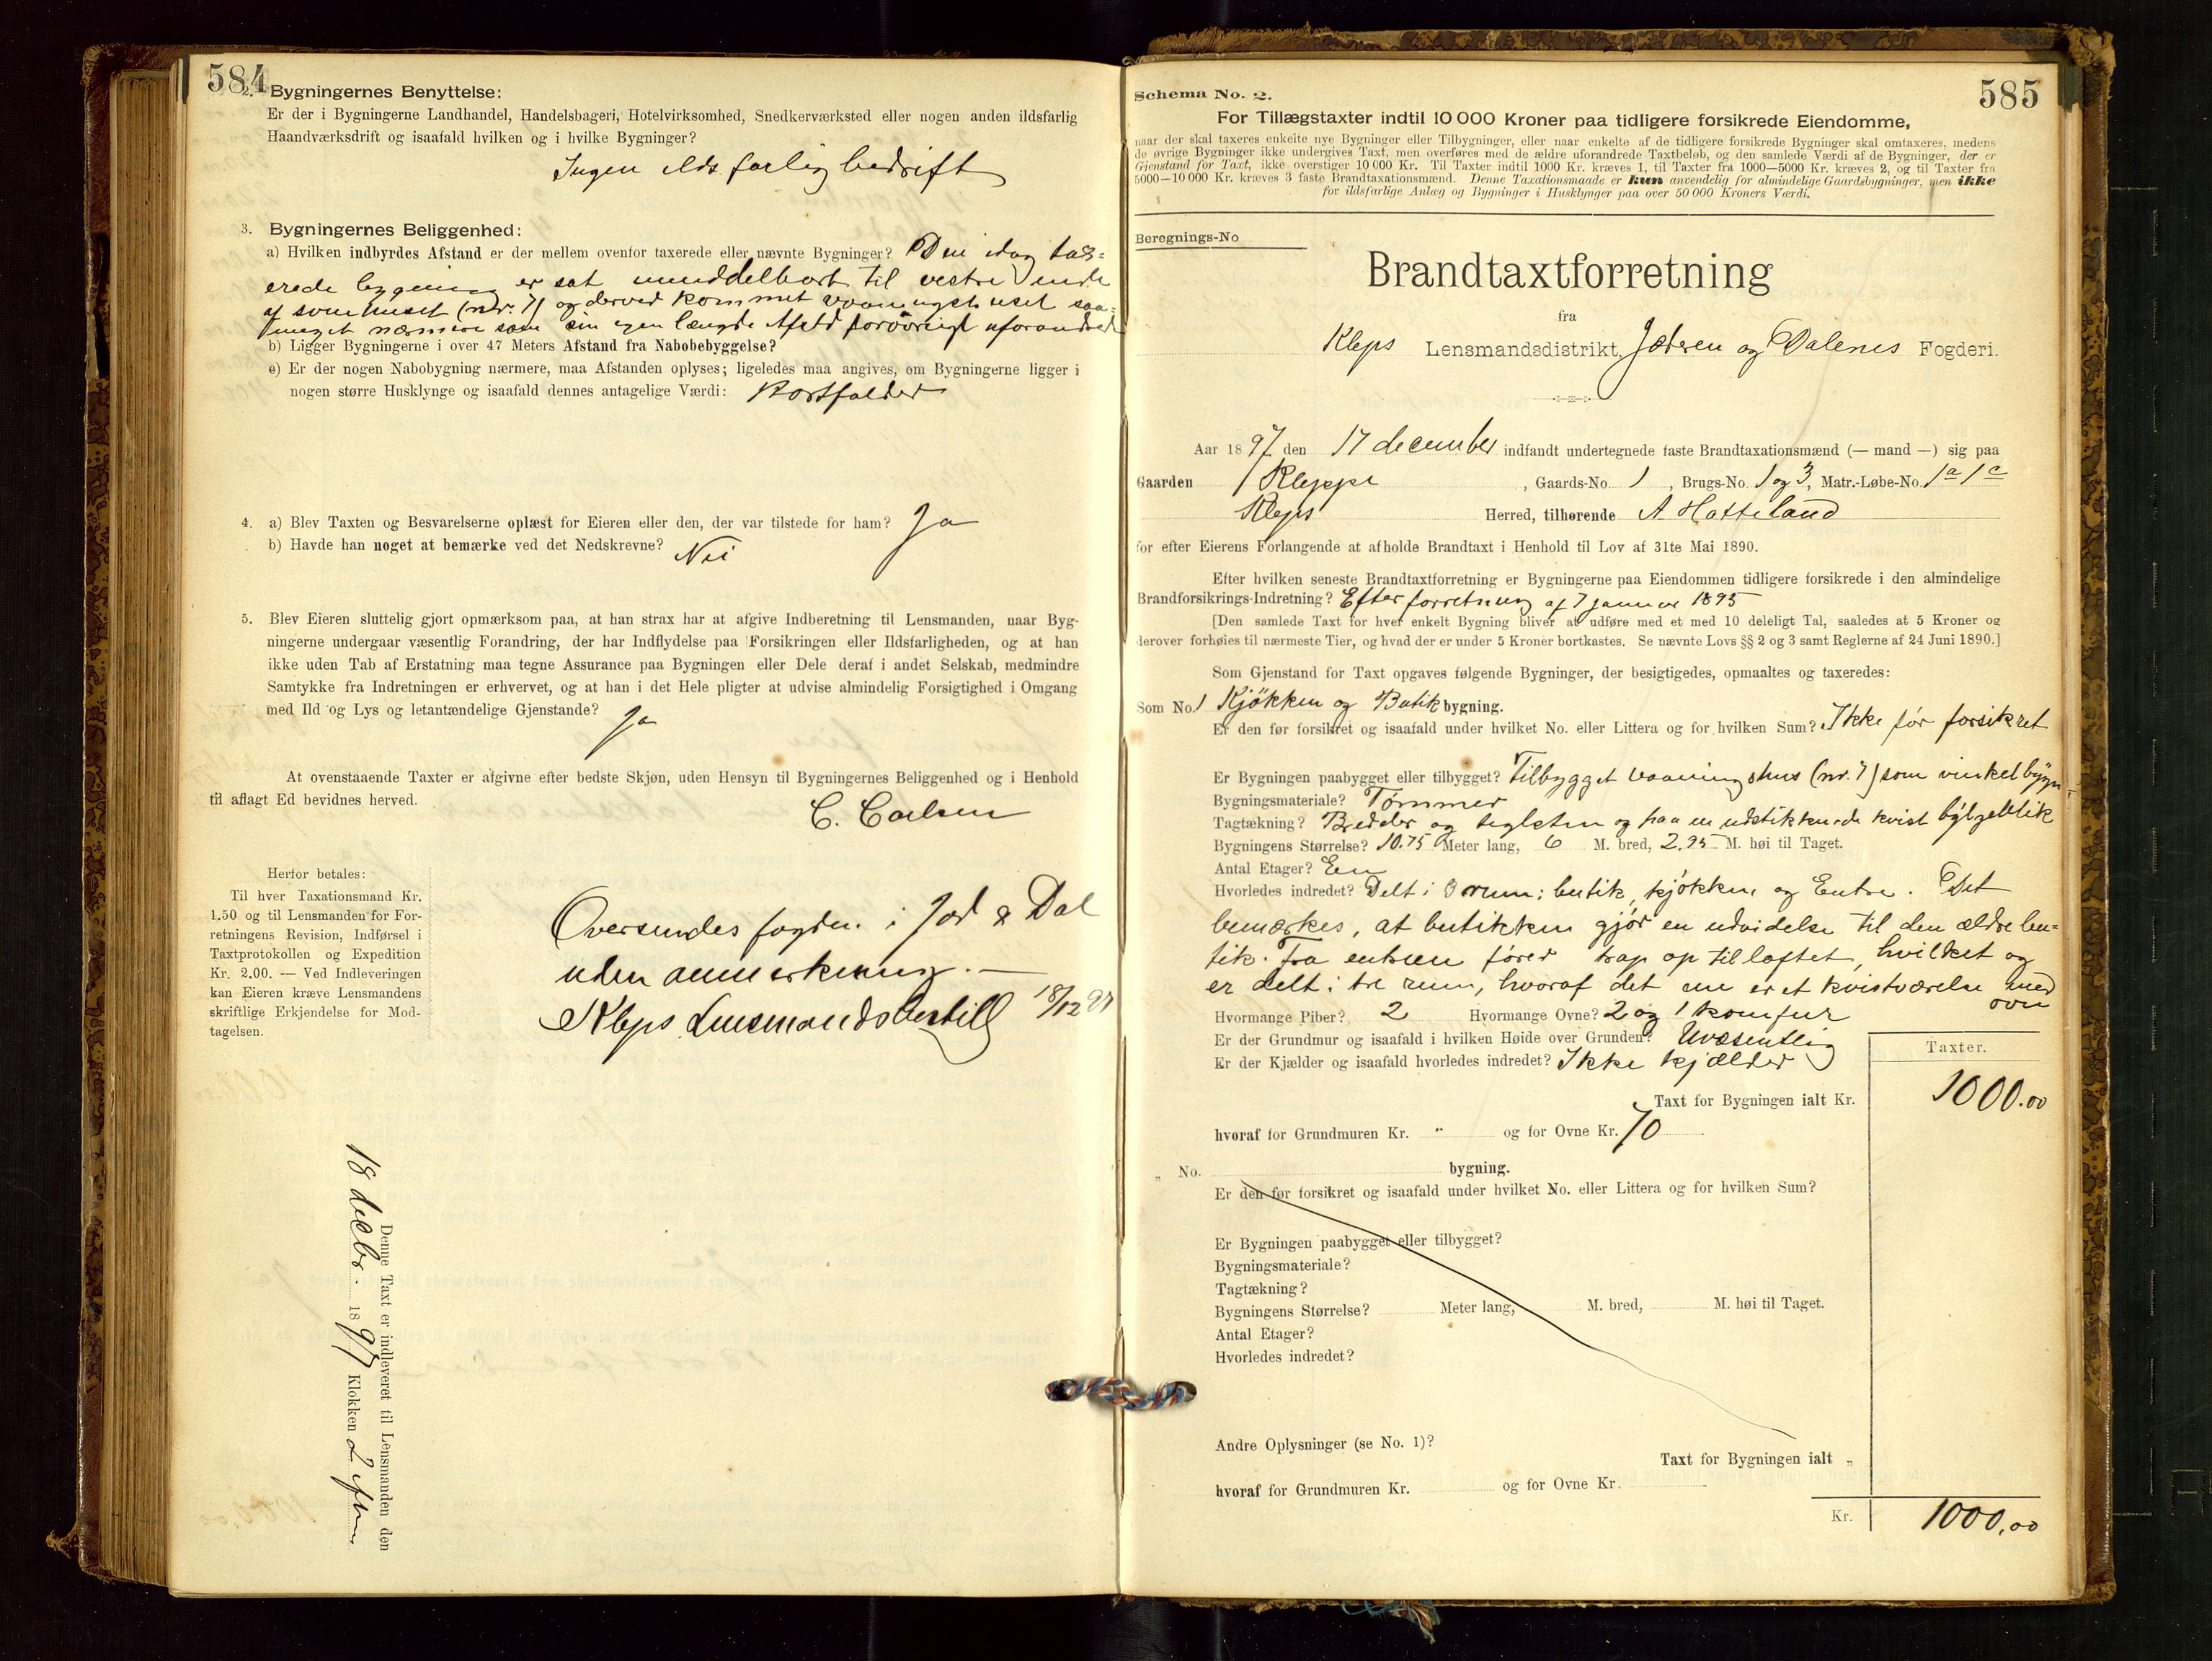 584
2. Bygningernes Benyttelse:
Er der i Bygningerne Landhandel, Handelsbageri, Hotelvirksomhed, Snedkerværksted eller nogen anden ildsfarlig
Haandværksdrift og isaafald hvilken og i hvilke Bygninger?
Ingen ilds farlig bedrift
3. Bygningernes Beliggenhed:
a) Hvilken indbyrdes Afstand er der mellem ovenfor taxerede eller nævnte Bygninger? Den idag tax=
erede bygning er sat umiddelbart til vestre ende
af svinehuset (nr. 7) og derved kommet vaaningshuset saa=
meget nærmere som sin egen længde Afstd forøvrigt uforandret
b) Ligger Bygningerne i over 47 Meters Afstand fra Nabobebyggelse?
c) Er der nogen Nabobygning nærmere, maa Afstanden oplyses; ligeledes maa angives, om Bygningerne ligger i
nogen større Husklynge og isaafald dennes antagelige Værdi: Bortfalder
4. a) Blev Taxten og Besvarelserne oplæst for Eieren eller den, der var tilstede for ham? Ja
b) Havde han noget at bemærke ved det Nedskrevne? Nei
5. Blev Eieren sluttelig gjort opmærksom paa, at han strax har at afgive Indberetning til Lensmanden, naar Byg-
ningerne undergaar væsentlig Forandring, der har Indflydelse paa Forsikringen eller Ildsfarligheden, og at han
ikke uden Tab af Erstatning maa tegne Assurance paa Bygningen eller Dele deraf i andet Selskab, medmindre
Samtykke fra Indretningen er erhvervet, og at han i det Hele pligter at udvise almindelig Forsigtighed i Omgang
med Ild og Lys og letantændelige Gjenstande? Ja
At ovenstaaende Taxter er afgivne efter bedste Skjøn, uden Hensyn til Bygningernes Beliggenhed og i Henhold
til aflagt Ed bevidnes herved.
C. Carlsen
Herfor betales:
Til hver Taxationsmand Kr.
1.50 og til Lensmanden for For-
retningens Revision, Indførsel i
Taxtprotokollen og Expedition
Kr. 2.00. — Ved Indleveringen
kan Eieren kræve Lensmandens
skriftlige Erkjendelse for Mod-
tagelsen.
Oversendes fogden i Jæd & Dal
uden anmerkning. —
Kleps Lensmandsbestill 18/12 97
Denne Taxt er indleveret til Lensmanden den
18 decbr. 1897 Klokken 2 eftm
585
Schema No. 2.
For Tillægstaxter indtil 10 000 Kroner paa tidligere forsikrede Eiendomme,
naar der skal taxeres enkelte nye Bygninger eller Tilbygninger, eller naar enkelte af de tidligere forsikrede Bygninger skal omtaxeres, medens
de øvrige Bygninger ikke undergives Taxt, men overføres med de ældre uforandrede Taxtbeløb, og den samlede Værdi af de Bygninger, der er
Gjenstand for Taxt, ikke overstiger 10 000 Kr. Til Taxter indtil 1000 Kr. kræves 1, til Taxter fra 1000—5000 Kr. kræves 2, og til Taxter fra
5000—10 000 Kr. kræves 3 faste Brandtaxationsmænd. Denne Taxationsmaade er kun anvendelig for almindelige Gaardsbygninger, men ikke
for ildsfarlige Anlæg og Bygninger i Husklynger paa over 50 000 Kroners Værdi.
Beregnings-No
Brandtaxtforretning
fra
Kleps Lensmandsdistrikt, Jæderen og Dalenes Fogderi.
Aar 1897 den 17 december indfandt undertegnede faste Brandtaxationsmænd (— mand —) sig paa
Gaarden Kleppe, Gaards-No. 1, Brugs-No. 1 og 3, Matr.-Løbe-No. 1a 1c
Kleps Herred, tilhørende A Hatteland
for efter Eierens Forlangende at afholde Brandtaxt i Henhold til Lov af 31te Mai 1890.
Efter hvilken seneste Brandtaxtforretning er Bygningerne paa Eiendommen tidligere forsikrede i den almindelige
Brandforsikrings-Indretning? Efter forretning af 7 januar 1895
[Den samlede Taxt for hver enkelt Bygning bliver at udføre med et med 10 deleligt Tal, saaledes at 5 Kroner og
derover forhøies til nærmeste Tier, og hvad der er under 5 Kroner bortkastes. Se nævnte Lovs §§ 2 og 3 samt Reglerne af 24 Juni 1890.]
Som Gjenstand for Taxt opgaves følgende Bygninger, der besigtigedes, opmaaltes og taxeredes:
Som No. 1 Kjøkken og Butik bygning.
Er den før forsikret og isaafald under hvilket No. eller Littera og for hvilken Sum? Ikke før forsikret
Er Bygningen paabygget eller tilbygget? Tilbygget vaaningshus (nr. 7) som vinkelbygn=
Bygningsmateriale? Tømmer
Tagtækning? Bredder og teglsten og paa en udstikkende kvist bølgeblik
Bygningens Størrelse? 10.75 Meter lang, 6 M. bred, 2.95 M. høi til Taget.
Antal Etager? En
Hvorledes indredet? Delt i 3 rum: butik, kjøkken og Entre. Det
bemærkes, at butikken gjør en udvidelse til den ældre bu=
tik. Fra entreen fører trap op til loftet, hvilket og
er delt i tre rum, hvoraf det ene er et kvistværelse med
ovn
Hvormange Piber? 2 Hvormange Ovne? 2 og 1 komfur
Er der Grundmur og isaafald i hvilken Høide over Grunden? Uvæsentlig
Er der Kjælder og isaafald hvorledes indredet? Ikke kjælder
Taxter.
Taxt for Bygningen ialt Kr. 1000.00
hvoraf for Grundmuren Kr. " og for Ovne Kr. 70
" No. bygning.
Er den før forsikret og isaafald under hvilket No. eller Littera og for hvilken Sum?
Er Bygningen paabygget eller tilbygget?
Bygningsmateriale?
Tagtækning?
Bygningens Størrelse? Meter lang, M. bred, M. høi til Taget.
Antal Etager?
Hvorledes indredet?
Andre Oplysninger (se No. 1)?
Taxt for Bygningen ialt "
hvoraf for Grundmuren Kr. og for Ovne Kr.
Kr. 1000,00